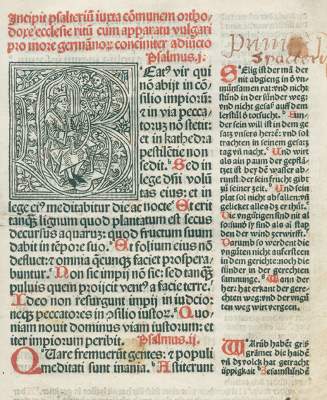 Incipit psalteriũ iuxta cõmunem ortho
doxe ecclesie ritũ cum apparatu vulgari
pro more germanor̃ concinniter adiucto
Psalmus.j.
Eat⁹ vir qui
nõ abijt in cõ
silio impiorũ:
ꝛ in via pecca
torum nõ stetit:
et in kathedra
pestilẽtie non
sedit. Sed in
lege dñi volũ
tas eius: et in
lege ei⁹ meditabitur die ac nocte Et erit
tanq̃ lignum quod plantatum est secus
decursus aquarum: quod fructum suum
dabit in tẽpore suo. Et folium eius nõ
defluet: ꝛ omnia q̃cunq faciet prospera
buntur. Non sic impij nõ sic: sed tanq̃
puluis quem proijcit vent⁹ a facie terre.
Ideo non resurgunt impij in iudicio:
neq peccatores in cõsilio iustor. Quo
niam nouit dominus viam iustorum: et
iter impiorum peribit. Psalmus.ij.
Quare fremuerũt gentes: ꝛ populi
meditati sunt inania. Astiterunt
Selig ist der mã der
nit abgieng in d̉
munsamen rat: vnd nicht
stund in der sünder weg:
vnd nicht gesaß auff dem
Sun
der sein will ist in dem ge
satz vnsers herrẽ: vnd sol
trachten in seinem gesatz
tag vñ nacht. Und wirt
als ein paum der gepflã
tzt ist bey dẽ wasser
runst: der sein frücht gibt
zu seiner zeit. Und sein
plat sol nicht abfallẽ: vñ
gelücklich
Die vngütigen sind nit al
so: sunder sind als d̉ stap
den der wind zerwirfft.
Darumb so werdent die
vngüten nicht auffersteen
in dem gericht: noch die
sünder in der gerechten
samnunge. Wann der
herr hat erkant der gerech
ten weg: vnd der vngüten
weg wirt verderben.
Warũb habẽt gri
sgramet die haidẽ
vñ dy volck hat getracht
üppigkait